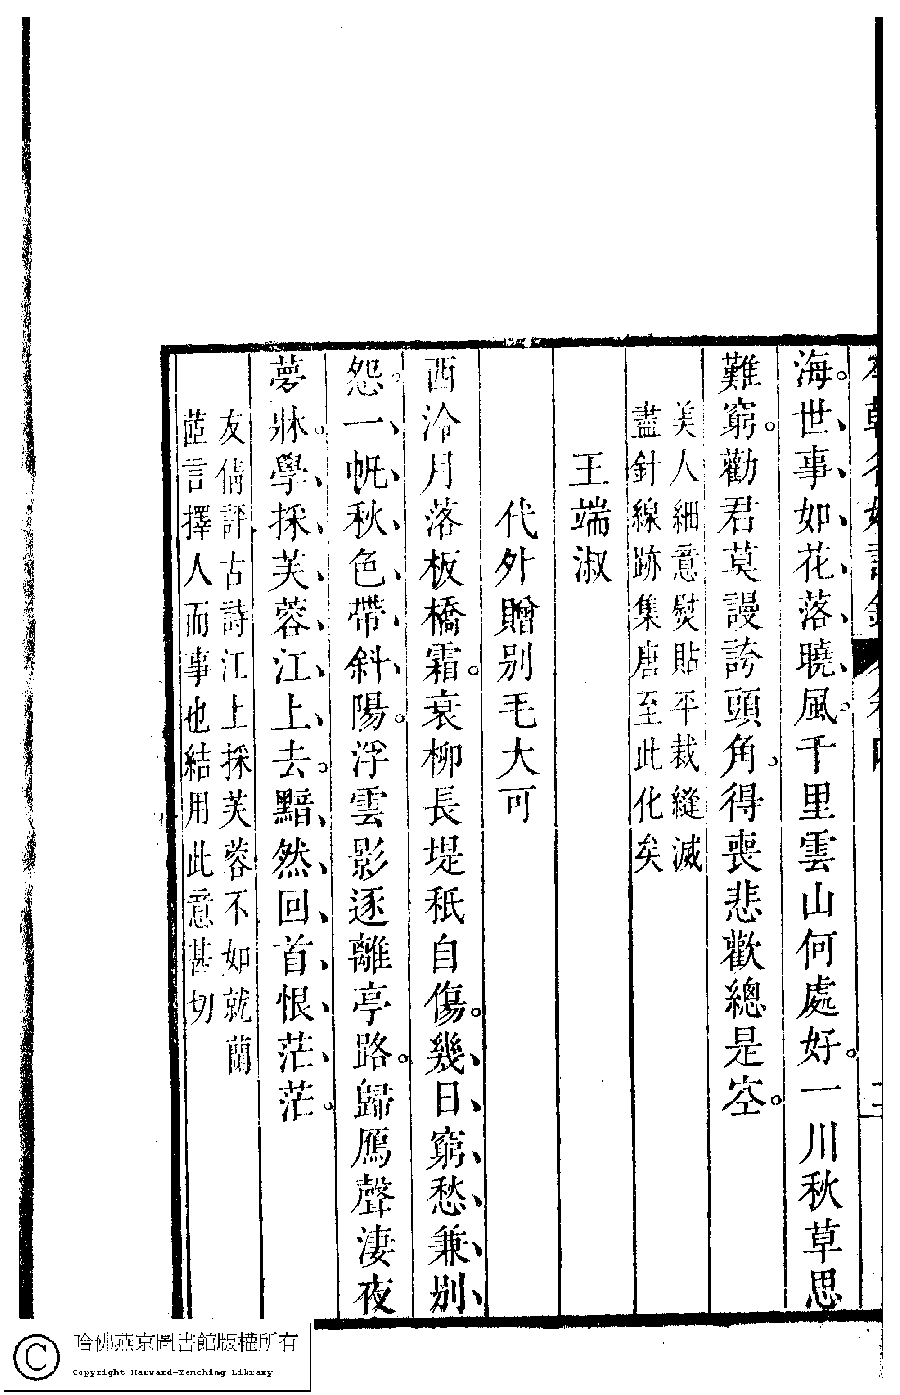 海世事如花落曉風千里雲山何處好一川秋草思
難窮勸君莫謾誇頭角得喪悲歡總是空
美人細意熨貼平裁縫滅
盡針線跡集唐至此化矣
王端淑
代外贈别毛大可
西泠月落板橋霜衰柳長堤秪自傷幾日窮愁兼别
怨一帆秋色帶斜陽浮雲影逐離亭路歸鴈聲淒夜
夢牀學採芙蓉江上去黯然回首恨茫茫
友倩評古詩江上採芙蓉不如就蘭
茝言擇人而事也結用此意甚切
哈佛燕京圖書館版權所有
Copyright Harvard-Yenching Library